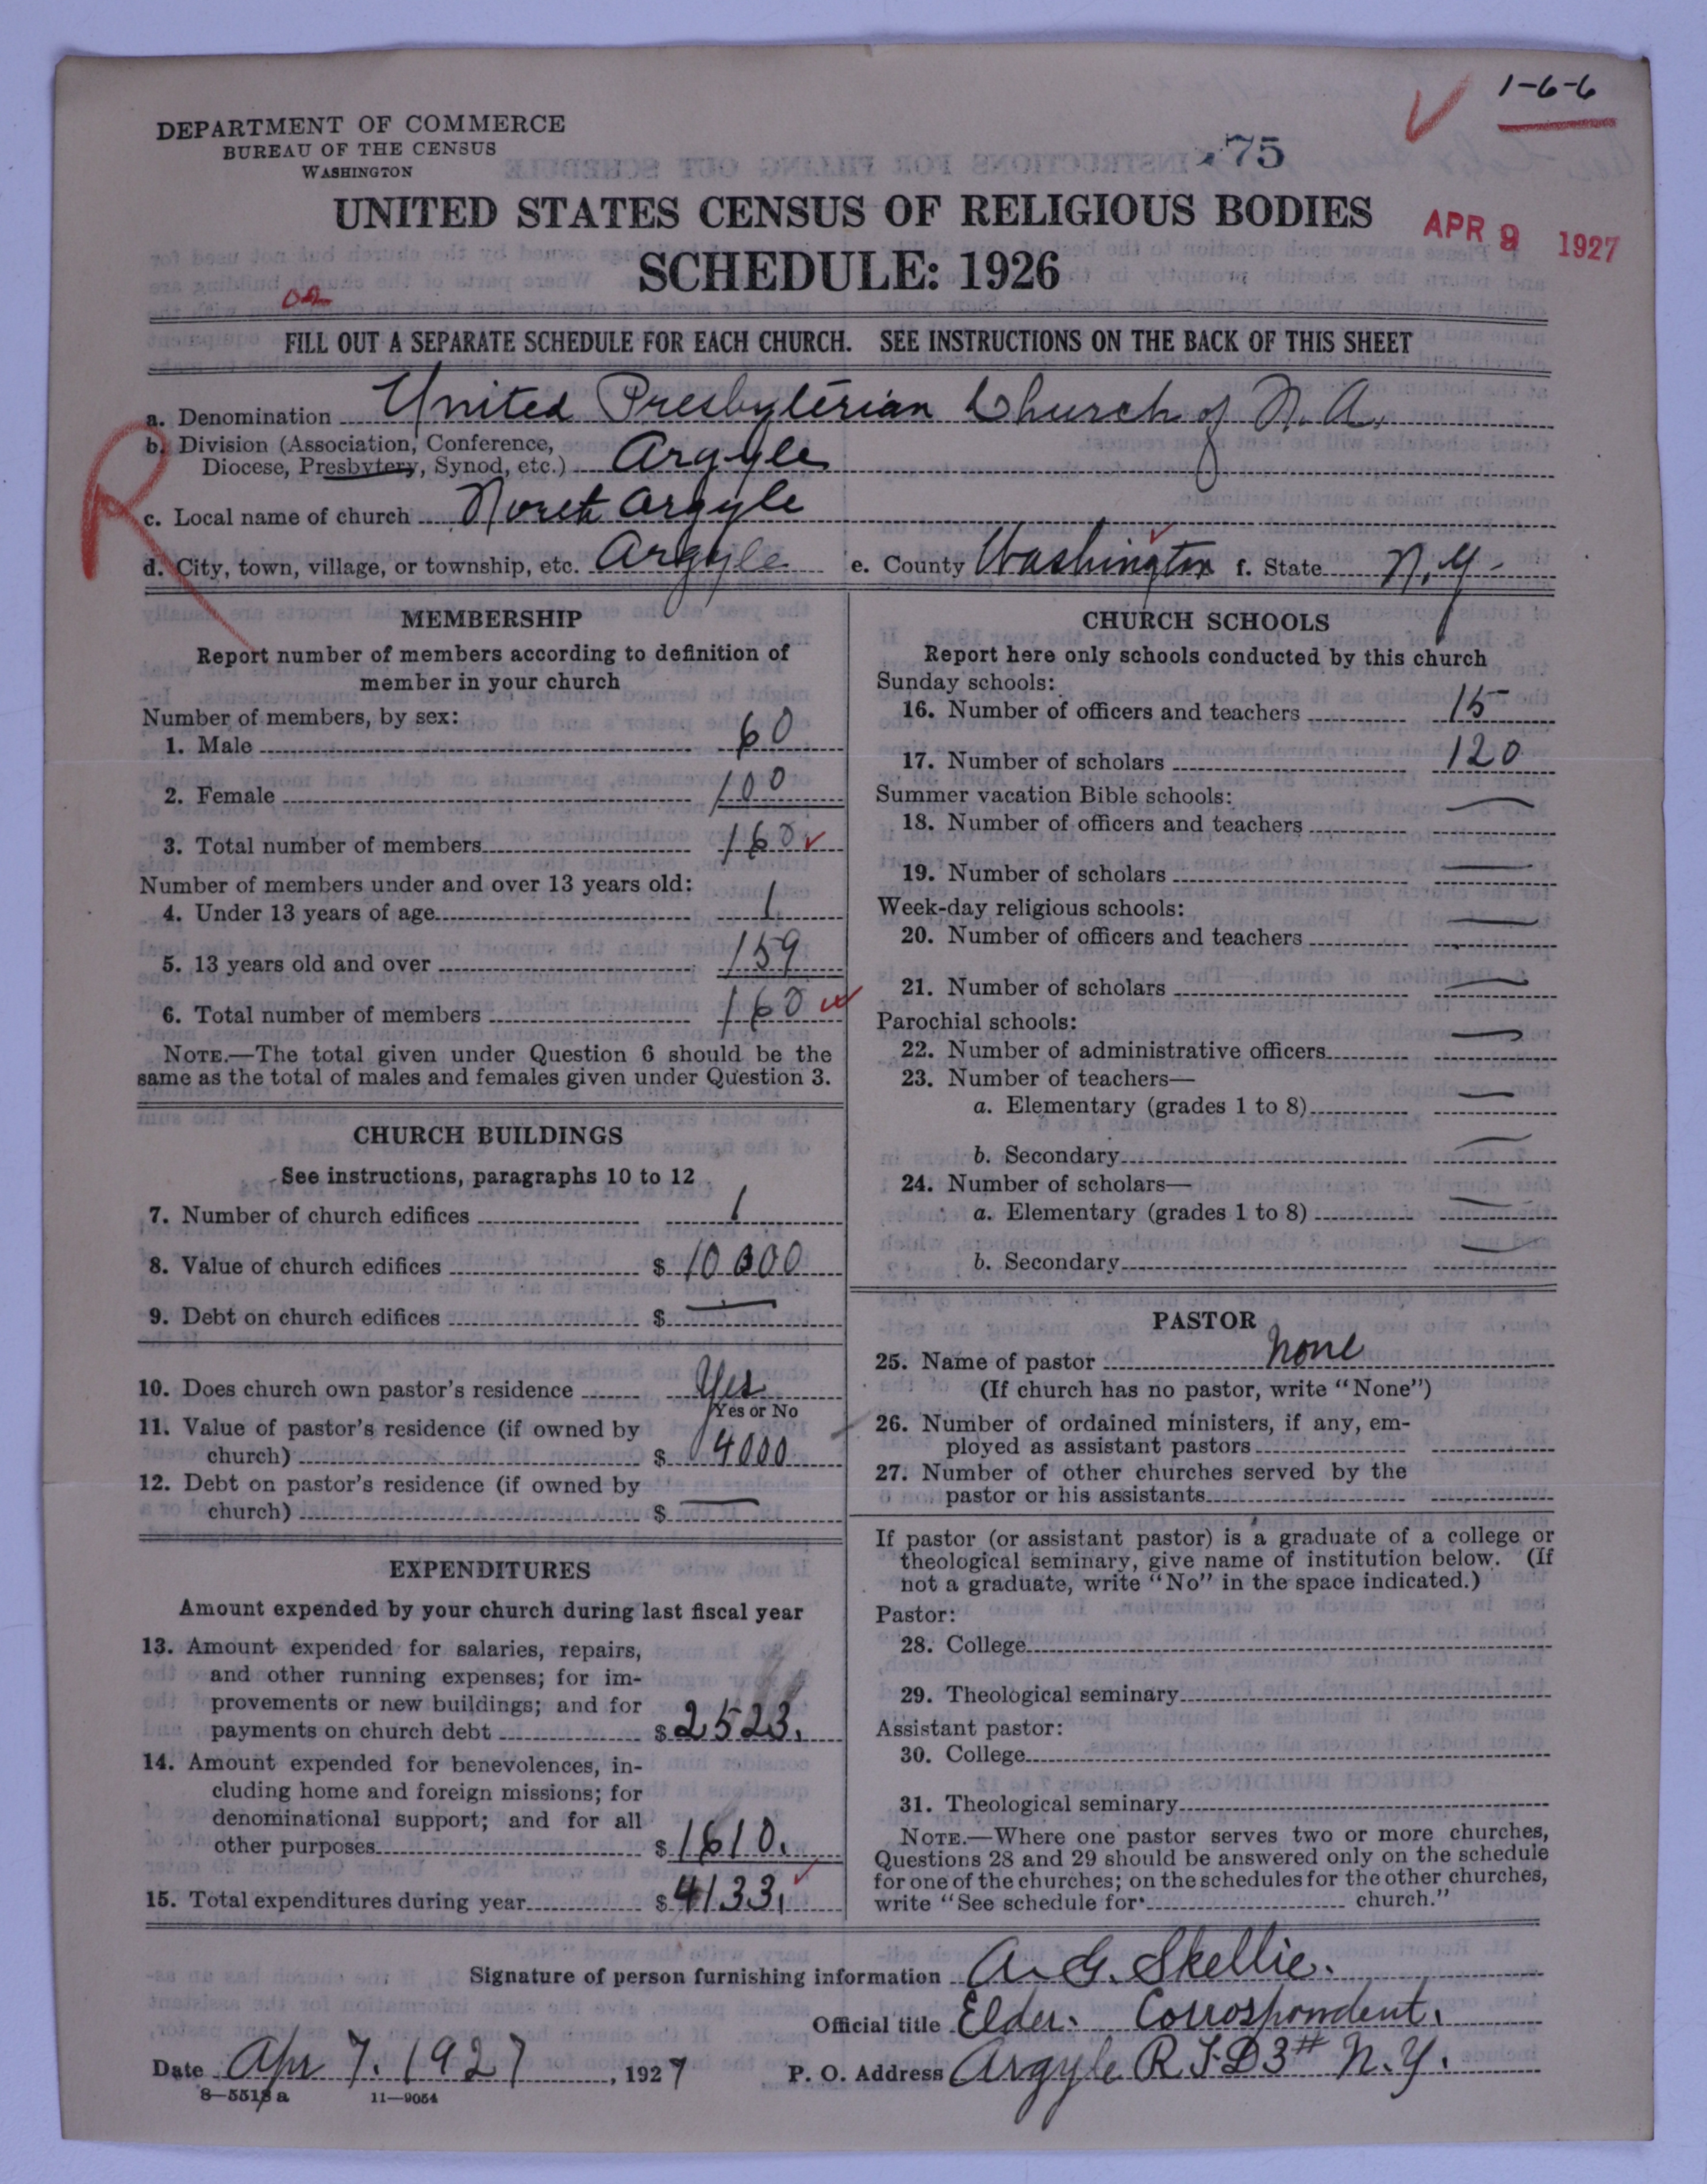 1-6-6
DEPARTMENT OF COMMERCE
BUREAU OF THE CENSUS
WASHINGTON
75
UNITED STATES CENSUS OF RELIGIOUS BODIES
APR 9 1927
SCHEDULE: 1926
FILL OUT A SEPARATE SCHEDULE FOR EACH CHURCH. SEE INSTRUCTIONS ON THE BACK OF THIS SHEET
a. Denomination United Presbyterian Church of N. A.
b. Division (Association, Conference,
Diocese, Presbytery, Synod, etc.) Argyle
R
c. Local name of church North Argyle
d. City, town, village, or township, etc. Argyle e. County Washington f. State N. Y.
MEMBERSHIP
Report number of members according to definition of
member in your church
Number of members, by sex:
1. Male 60
2. Female 100
3. Total number of members 160
Number of members under and over 13 years old:
4. Under 13 years of age 1
5. 13 years old and over 159
6. Total number of members 160
NOTE.—The total given under Question 6 should be the
same as the total of males and females given under Question 3.
CHURCH BUILDINGS
See instructions, paragraphs 10 to 12
7. Number of church edifices 1
8. Value of church edifices $ 10000
9. Debt on church edifices $ —
10. Does church own pastor's residence Yes
Yes or No
11. Value of pastor's residence (if owned by
church) $ 4000
12. Debt on pastor's residence (if owned by
church) $ —
EXPENDITURES
Amount expended by your church during last fiscal year
13. Amount expended for salaries, repairs,
and other running expenses; for im-
provements or new buildings; and for
payments on church debt $ 2523.
14. Amount expended for benevolences, in-
cluding home and foreign missions; for
denominational support; and for all
other purposes $ 1610.
15. Total expenditures during year $ 4133.
CHURCH SCHOOLS
Report here only schools conducted by this church
Sunday schools:
16. Number of officers and teachers 15
17. Number of scholars 120
Summer vacation Bible schools:
18. Number of officers and teachers —
19. Number of scholars —
Week-day religious schools:
20. Number of officers and teachers —
21. Number of scholars —
Parochial schools:
22. Number of administrative officers —
23. Number of teachers—
a. Elementary (grades 1 to 8) —
b. Secondary —
24. Number of scholars—
a. Elementary (grades 1 to 8) —
b. Secondary —
PASTOR
25. Name of pastor None
(If church has no pastor, write "None")
26. Number of ordained ministers, if any, em-
ployed as assistant pastors
27. Number of other churches served by the
pastor or his assistants
If pastor (or assistant pastor) is a graduate of a college or
theological seminary, give name of institution below. (If
not a graduate, write "No" in the space indicated.)
Pastor:
28. College
29. Theological seminary
Assistant pastor:
30. College
31. Theological seminary
NOTE.—Where one pastor serves two or more churches,
Questions 28 and 29 should be answered only on the schedule
for one of the churches; on the schedules for the other churches,
write "See schedule for church."
Signature of person furnishing information A. G. Skellie.
Official title Elder. Corrospondent.
Date Apr 7. 1927, 1927 P. O. Address Argyle R F D 3# N. Y.
8—5518 a 11—9054